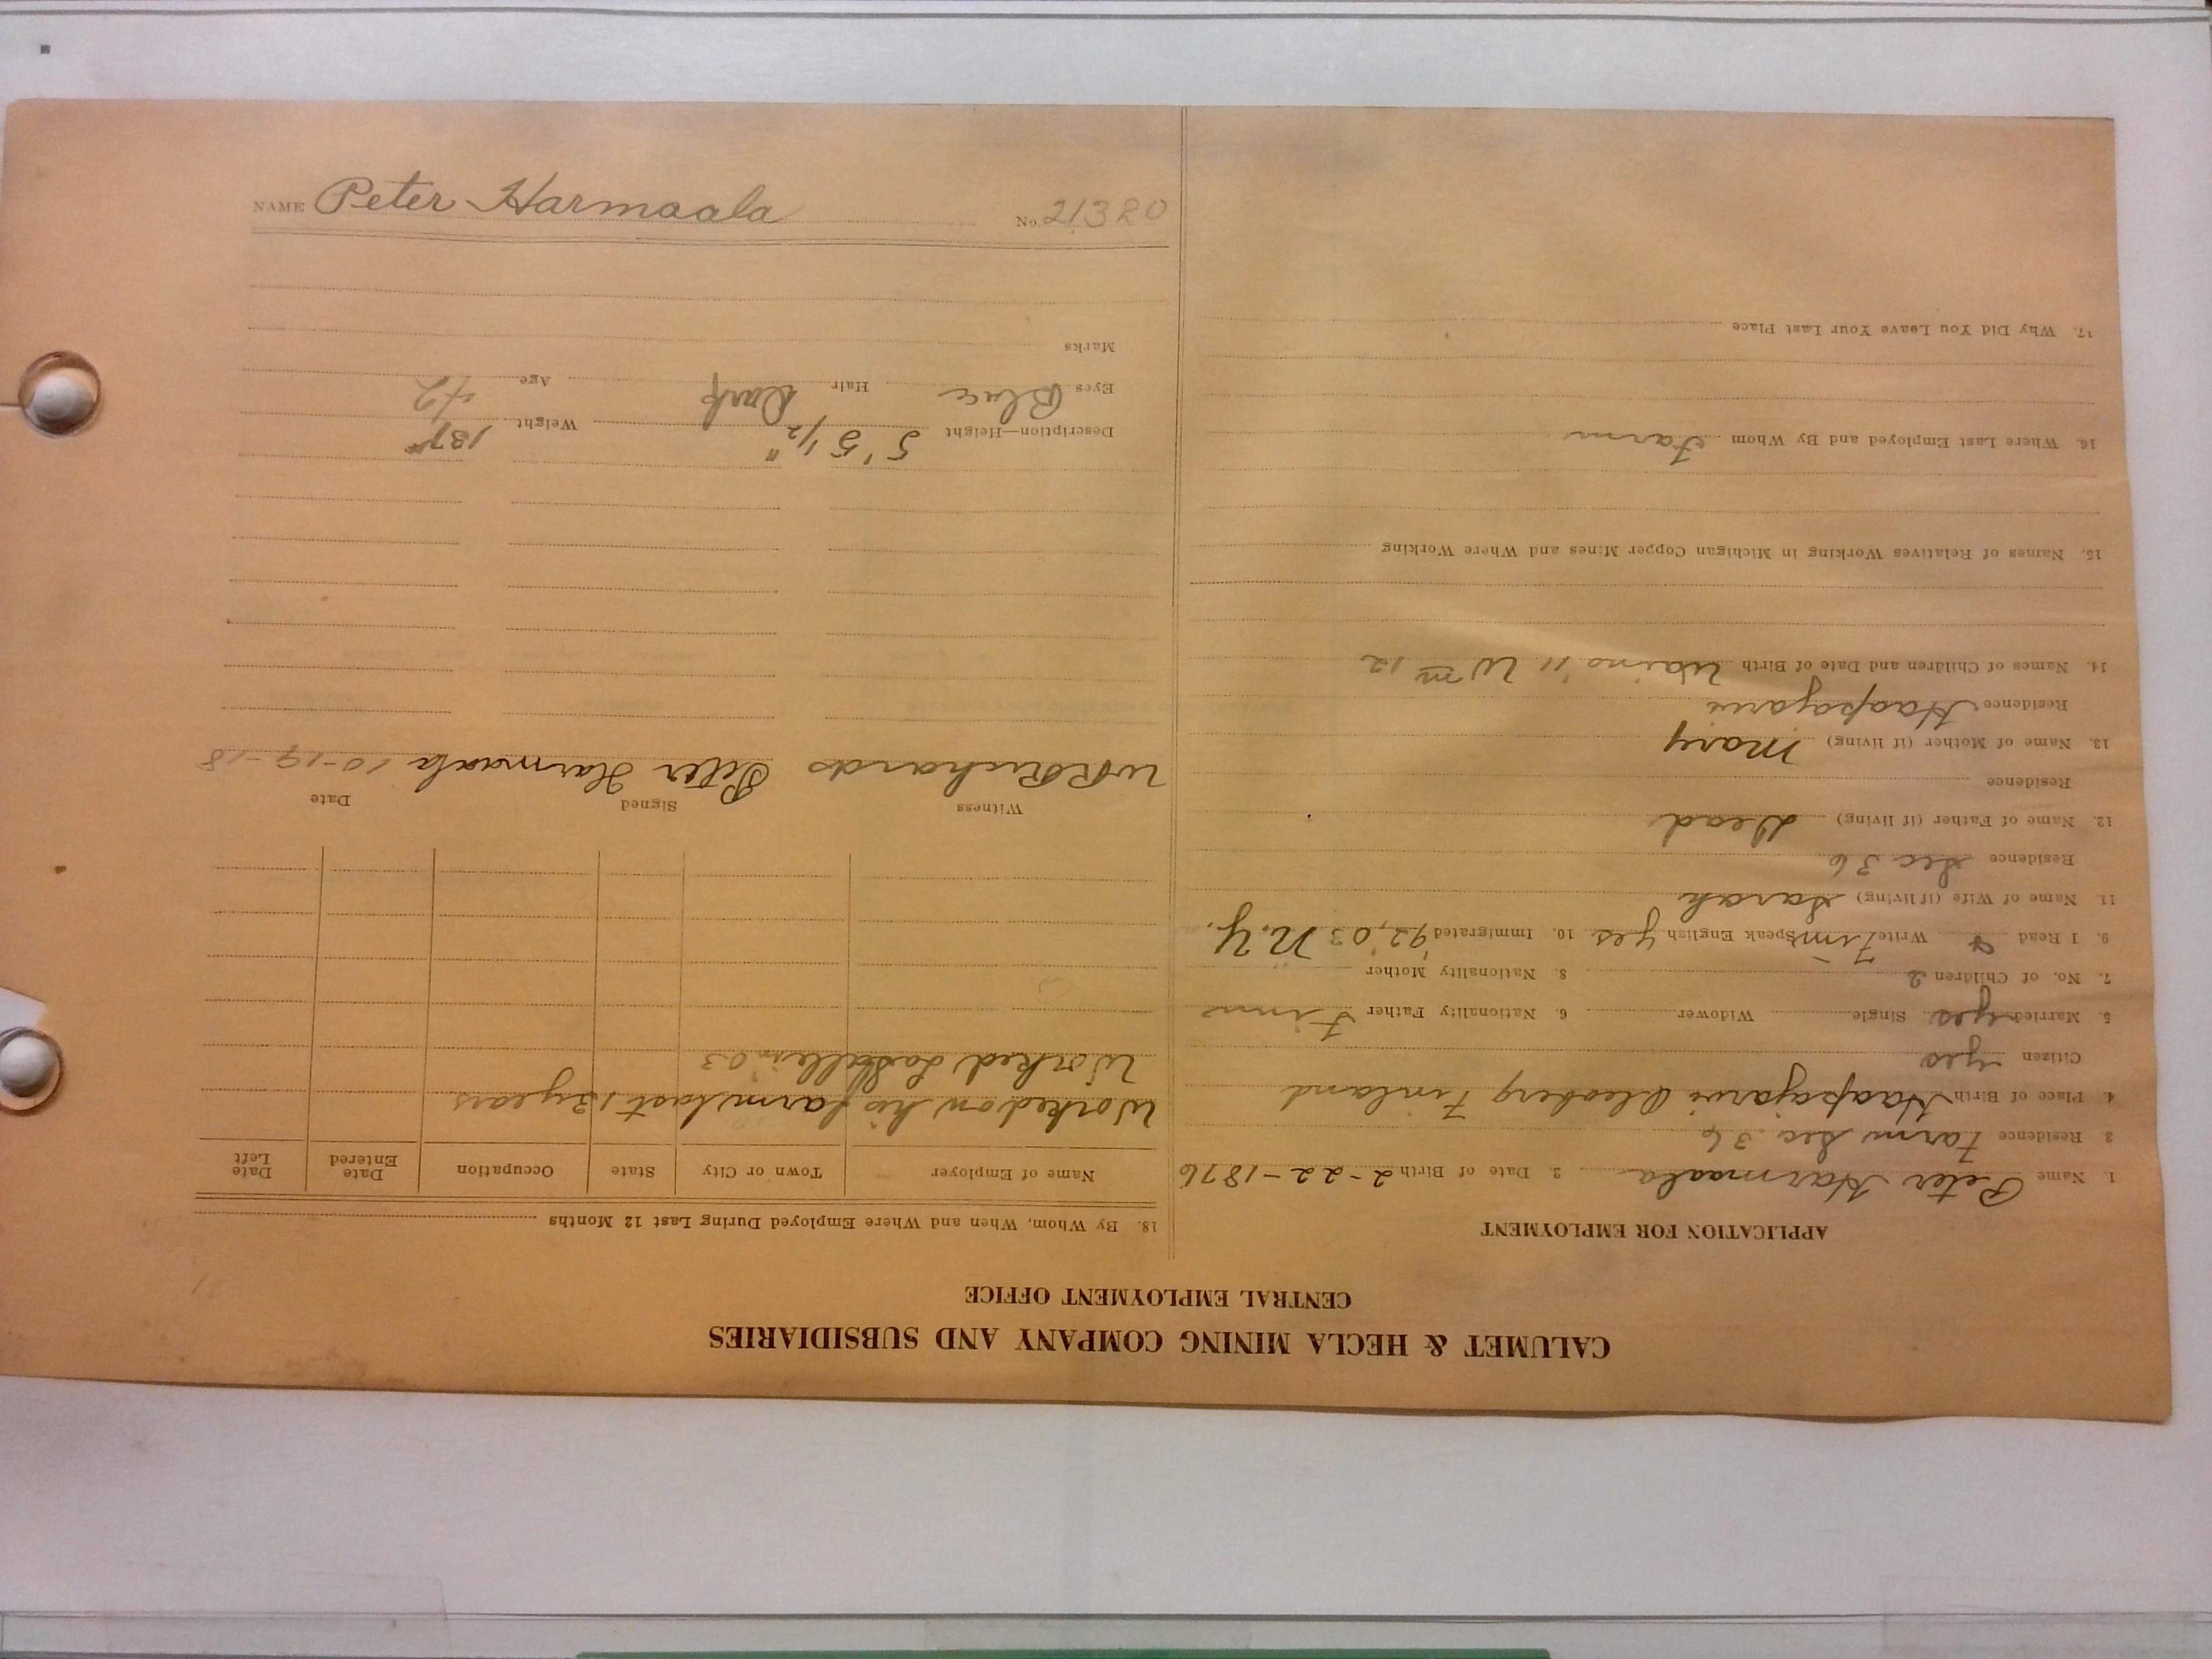 CALUMET & HECLA MINING COMPANY AND SUBSIDIARIES
CENTRAL EMPLOYMENT OFFICE
APPLICATION FOR EMPLOYMENT
1. Name Peter Harmaala 2. Date of Birth 2-22-1876
3. Residence Farm Sec. 36
4. Place of Birth Haapajarvi Uleoberg Finland
Citizen yes
5. Married yes Single Widower 6. Nationality Father Finn
7. No. of Children 2 8. Nationality Mother
9. I Read & Write Finn Speak English yes 10. Immigrated '92, '03 N.Y.
11. Name of Wife (if living) Sarah
Residence Sec 36
12. Name of Father (if living) Dead
Residence
13. Name of Mother (if living) Mary
Residence Haapajarvi
14. Names of Children and Date of Birth Waino 11 Wm 12
15. Names of Relatives Working in Michigan Copper Mines and Where Working
16. Where Last Employed and By Whom Farm
17. Why Did You Leave Your Last Place
18. By Whom, When and Where Employed During Last 12 Months
Name of Employer Town or City State Occupation Date Entered Date Left
Worked on his farm last 13 years
Worked LaSalle in 03
Witness Signed Date
WR Richards Peter Harmaala 10-19-18
Description—Height 5' 5 1/2" Weight 137#
Eyes Blue Hair Dark Age 42
Marks
NAME Peter Harmaala No. 21320